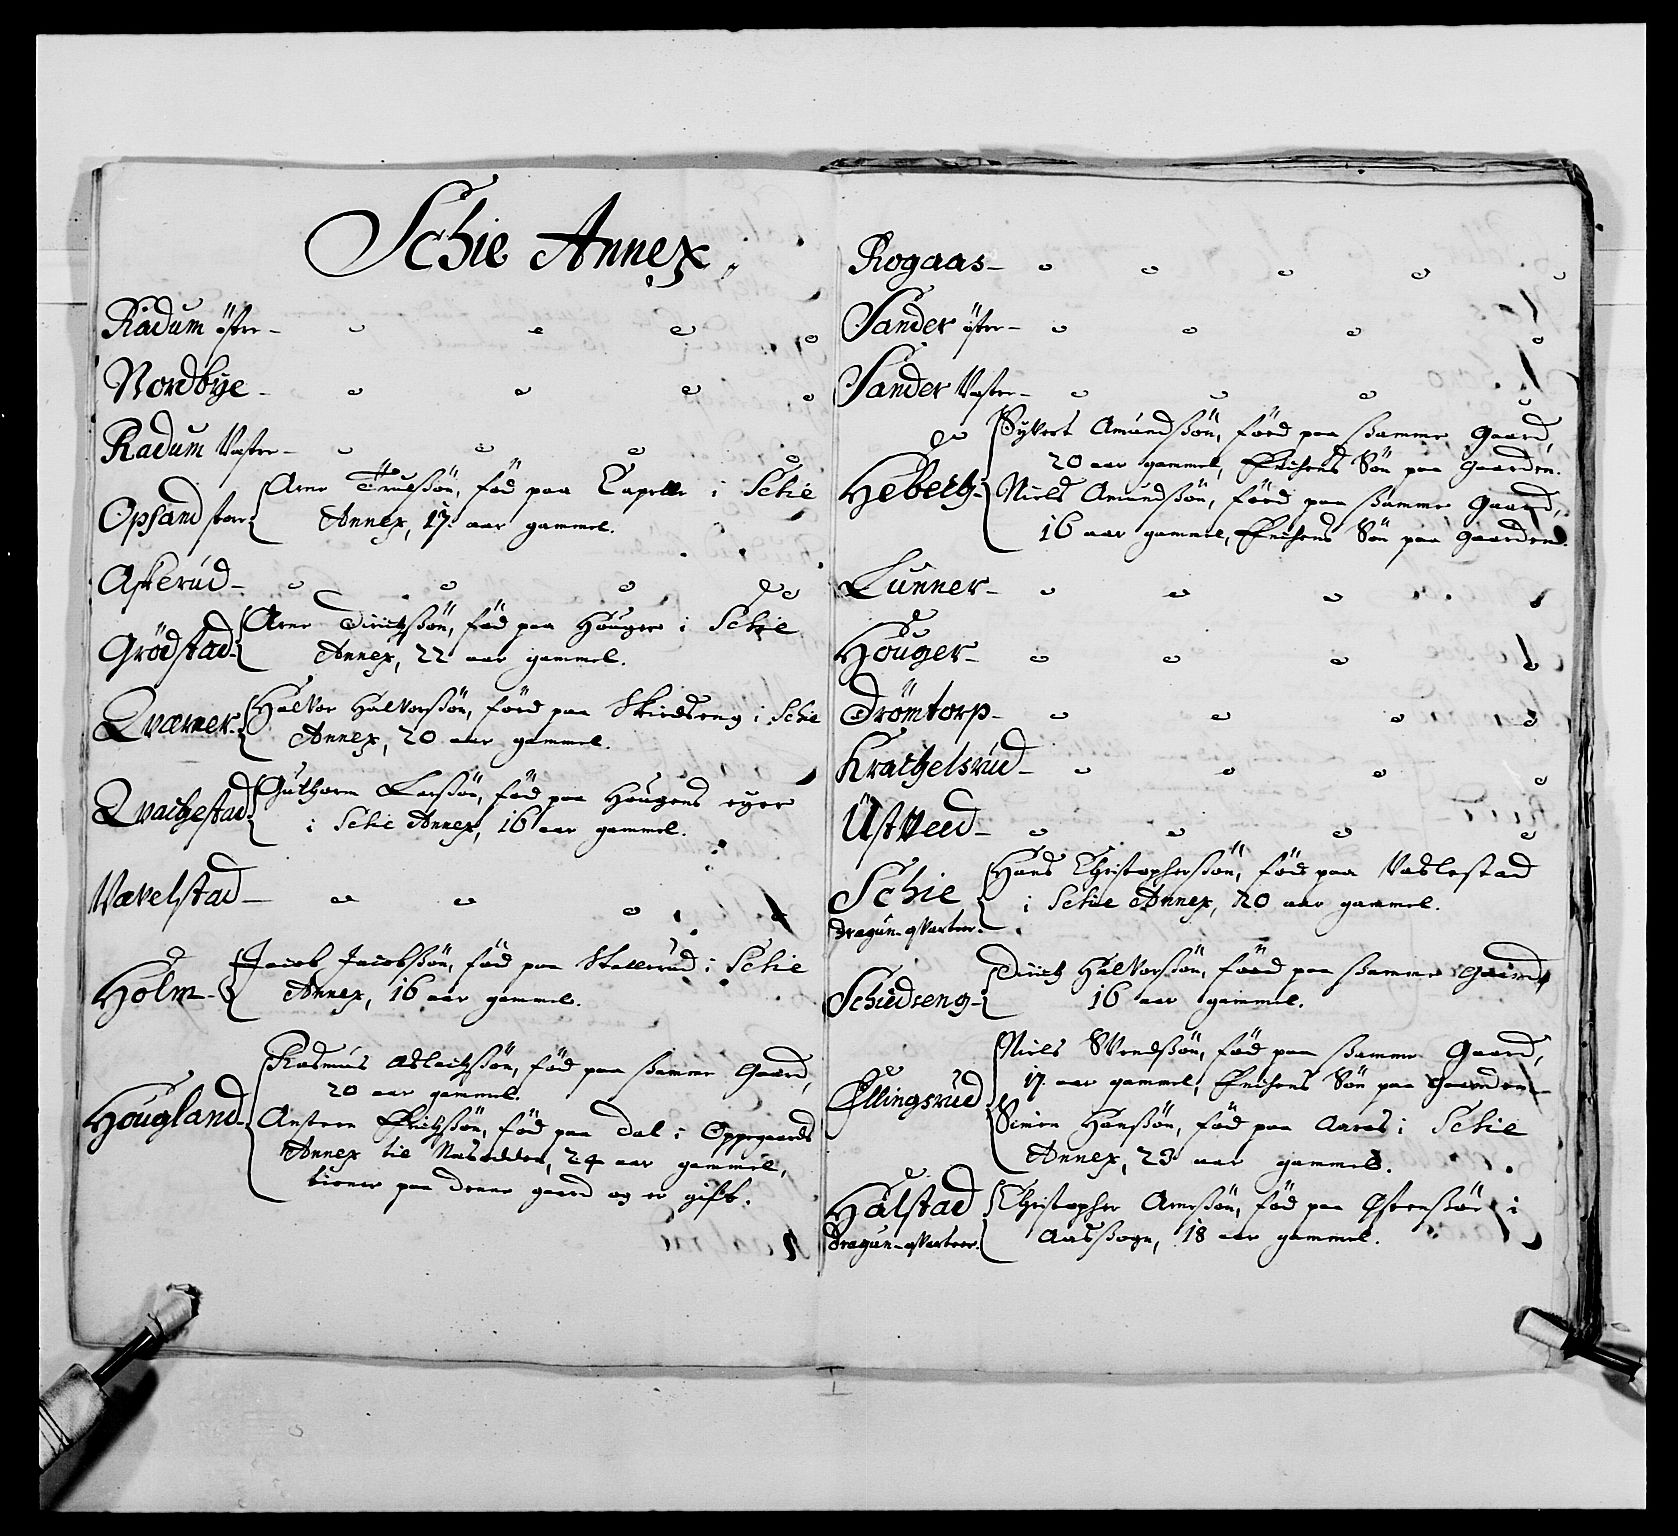 Schie Annex,
Radum öster –
Nordbÿe –
Radum Vester –
Opsand store
Arne Trulssön, föd paa Capelle i Schie
Annex, 17 aar gammel.
Askerud –
Grödstad
Arne Dirichssön, föd paa Houger i Schie
Annex, 22 aar gammel.
Qværner
Halvor Halvorssön, föed paa Skiedseng i Schie
Annex, 20 aar gammel.
Qvachestad
Guthorm Larssön, föd paa Hougens eyer
i Schie Annex, 16 aar gammel.
Vævelstad –
Holm –
Jacob Jacobssön, föd paa Stallerud i Schie
Annex, 16 aar gammel.
Hougland
Rasmus Aslachssön, föd paa ssamme Gaard,
20 aar gammel.
Anders Erichssön, föd paa Dal i Oppegaards
Annex til Næsodden, 24 aar gammel,
tiener paa denne gaard og er gift.
Rogaas –
Sander öster –
Sander Vester –
Hebech
Syvert Amundssön, föed paa ssamme Gaard,
20 aar gammel, Enchens Sön paa Gaarden.
Niels Amundssön, föed paa ssamme Gaard,
16 aar gammel, Enchens Sön paa Gaarden.
Lunner –
Houger –
Drömtorp –
Krachelsrud –
Üstveed –
Schie
Dragun-qvarteer.
Hans Christopherssön, föd paa Vevlestad
i Schie Annex, 20 aar gammel.
Schiedseng –
Dirich Halvorssön, föed paa ssamme Gaard,
16 aar gammel.
Ellingsrud
Niels Svendssön, föd paa ssamme Gaard,
17 aar gammel, Enchens Sön paa Gaarden –
Simen Hanssön, föd paa Aaraas i Schie
Annex, 23 aar gammel.
Halstad
Dragun-qvarteer.
Christopher Arnessön, föd paa Østenssöe i
Aas Sogn, 18 aar gammel.